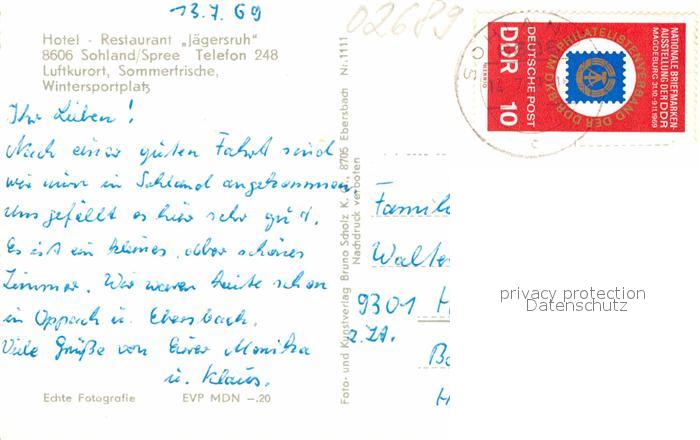 13.7.69
02689
Hotel - Restaurant „Jägersruh"
8606 Sohland/Spree Telefon 248
Luftkurort, Sommerfrische,
Wintersportplatz
Ihr Lieben!
Nach einer guten Fahrt sind
wir nun in Sohland angekommen.
Uns gefällt es hier sehr gut.
Es ist ein kleines, aber schönes
Zimmer. Wir waren heute schon
in Oppach u. Ebersbach.
Viele Grüße von Eurer Monika
u. Klaus.
Echte Fotografie EVP MDN -.20
Foto- und Kunstverlag Bruno Scholz K. 8705 Ebersbach Nr. 1111
Nachdruck verboten
Famili
Walte
9301 H
z. Zt.
B
H
DDR
DEUTSCHE POST
10
PHILATELISTENVERBAND DER DDR IM DKB
NATIONALE BRIEFMARKEN-
AUSSTELLUNG DER DDR
MAGDEBURG 31.10.-9.11.1969
privacy protection
Datenschutz